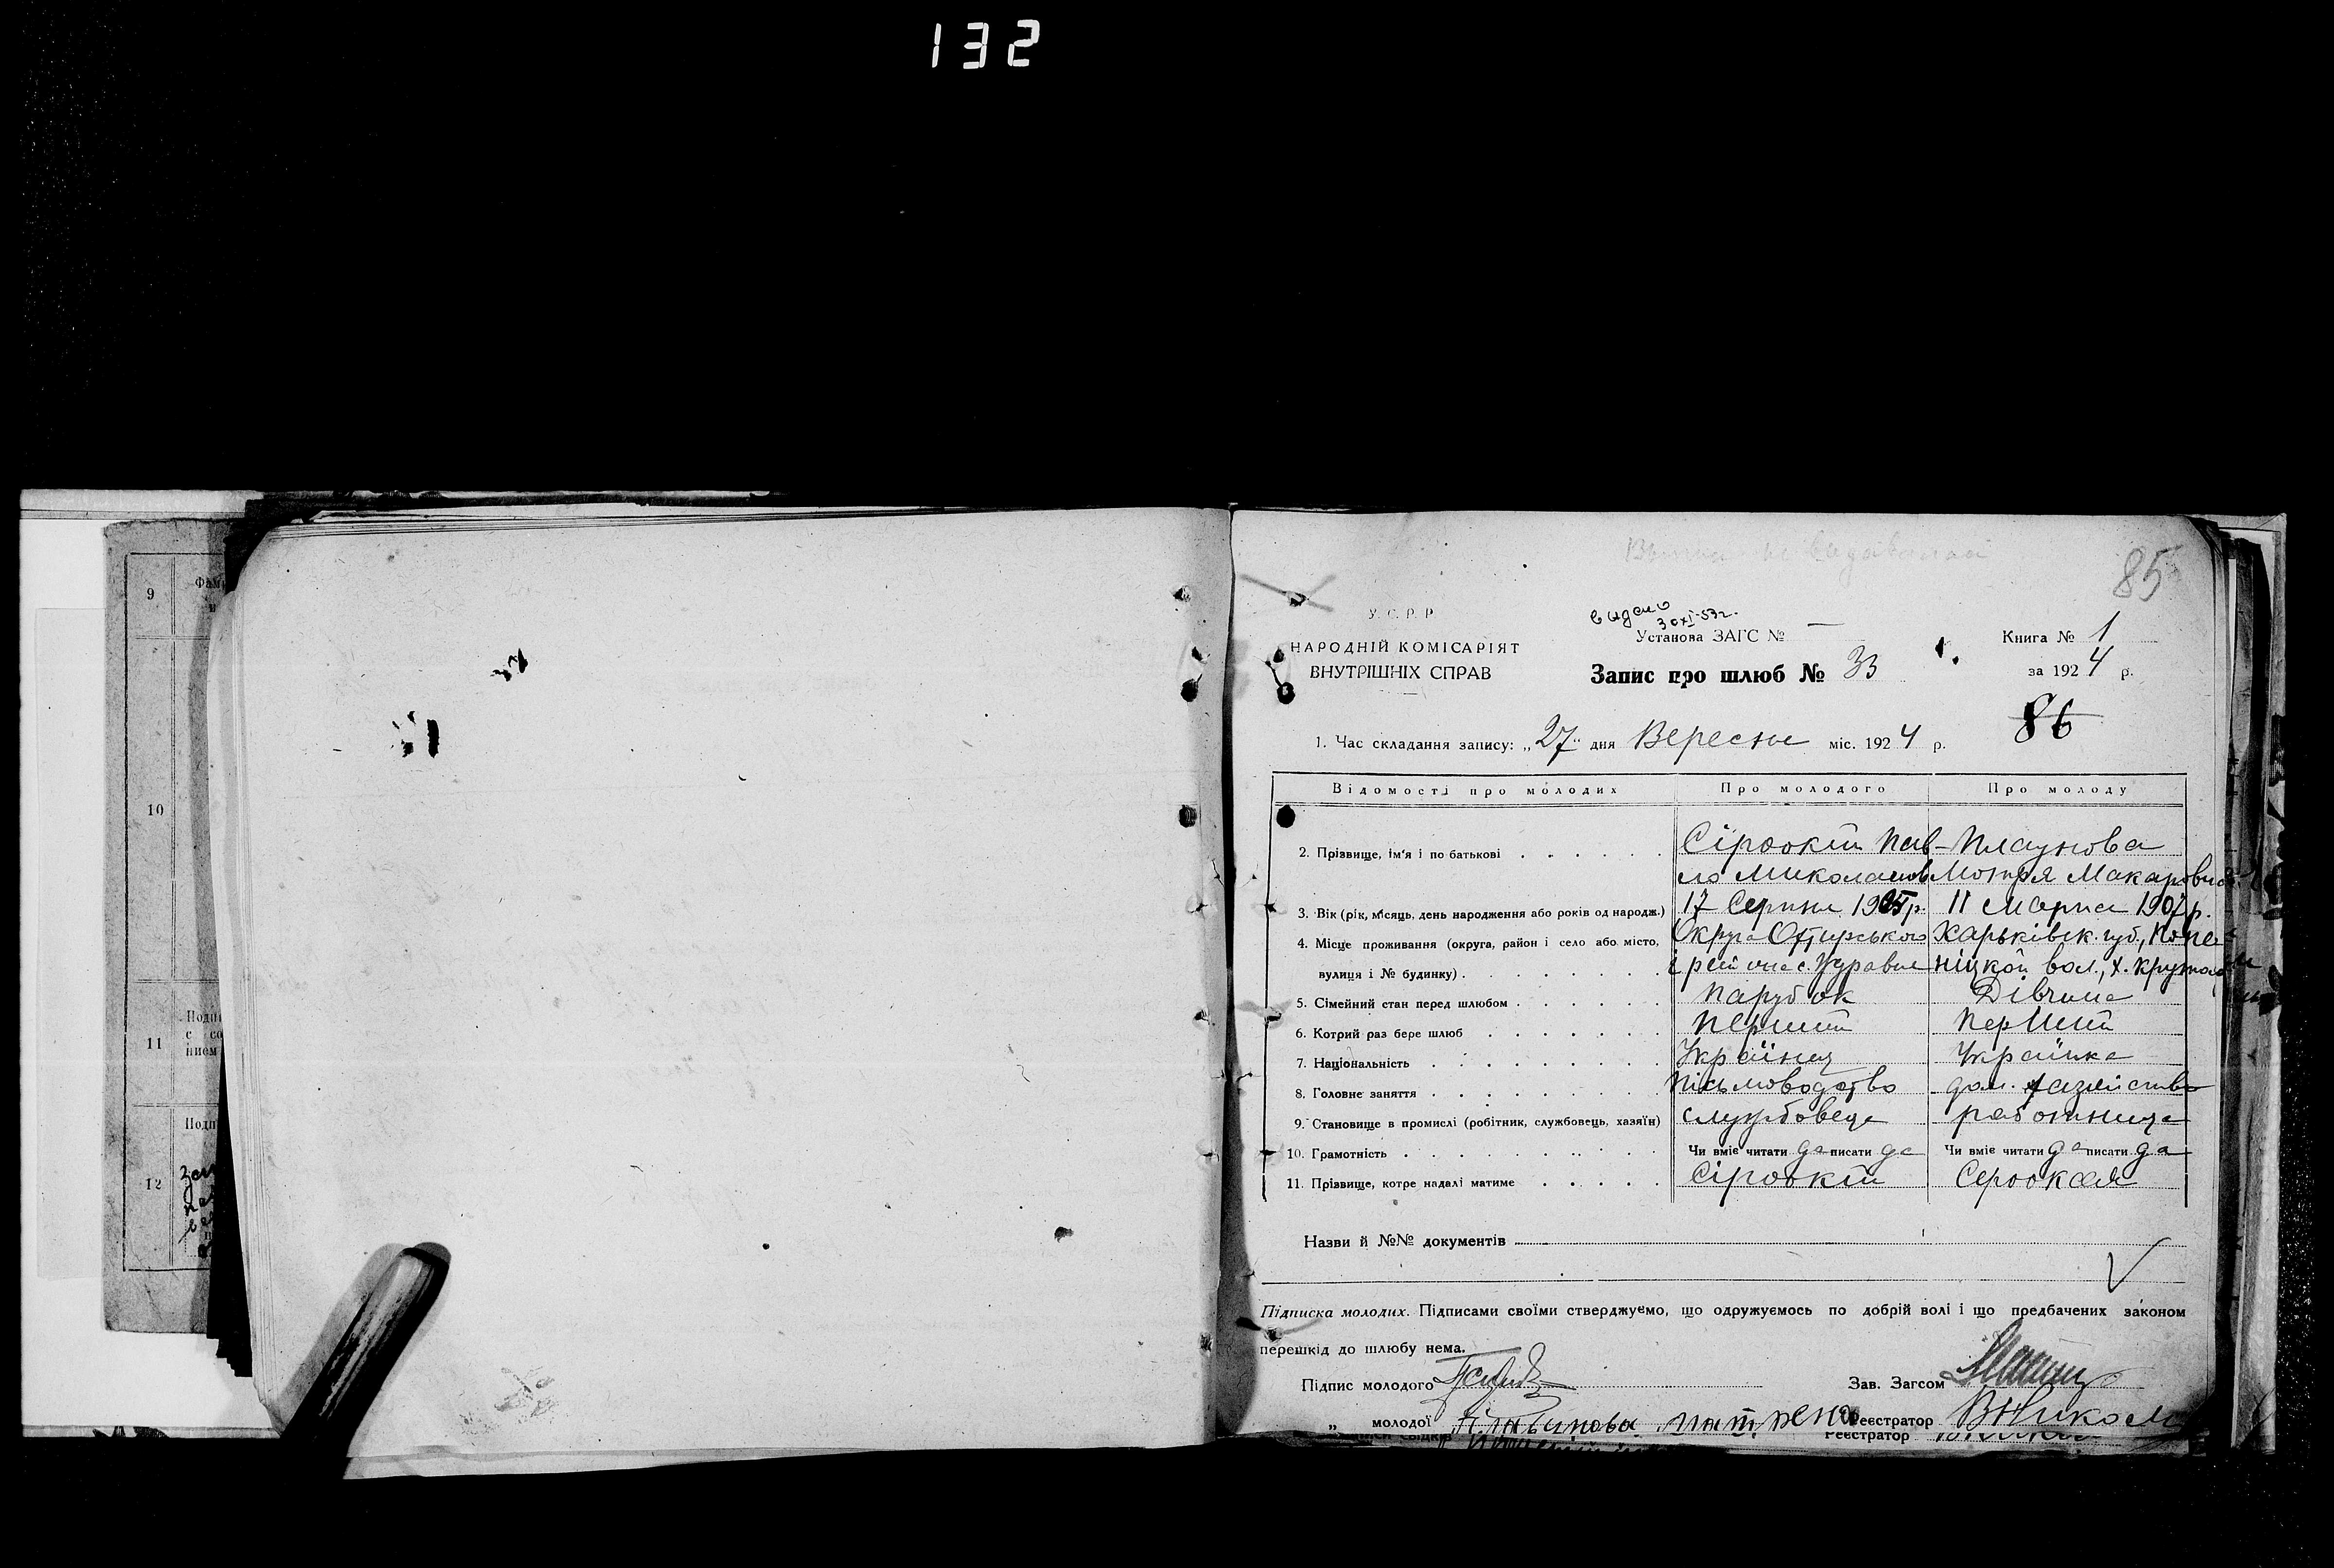 132
85
У. С. Р. Р.
видано
30 XI-53г.
НАРОДНІЙ КОМІСАРІЯТ
ВНУТРІШНІХ СПРАВ
Установа ЗАГС № —
Книга № 1
Запис про шлюб № 33
за 1924 р.
86
1. Час складання запису: „27“ дня Вересня міс. 1924 р.
Відомості про молодих Про молодого Про молоду
2. Прізвище, ім'я і по батькові Сірокий Пав- Плаунова
ло Миколаїв Мотря Макаровна
3. Вік (рік, місяць, день народження або років од народж.) 17 Серпня 1905р. 11 Марта 1907р.
4. Місце проживання (округа, район і село або місто, Округа Харьківск. губ.,
вулиця і № будинку) вол., х.
5. Сімейний стан перед шлюбом Парубок Дівчина
6. Котрий раз бере шлюб Перший Перший
7. Національність Українец Українка
8. Головне заняття Письмоводство дом. хазяйство
9. Становище в промислі (робітник, службовець, хазяїн) службовець работница
10. Грамотність Чи вміє читати да писати да Чи вміє читати да писати да
11. Прізвище, котре надалі матиме Сіроокий Сероокая
Назви й №№ документів
Підписка молодих. Підписами своїми стверджуємо, що одружуємось по добрій волі і що предбачених законом
перешкід до шлюбу нема.
Підпис молодого
Зав. Загсом
„ молодої Реєстратор
Реєстратор
9
10
11
12